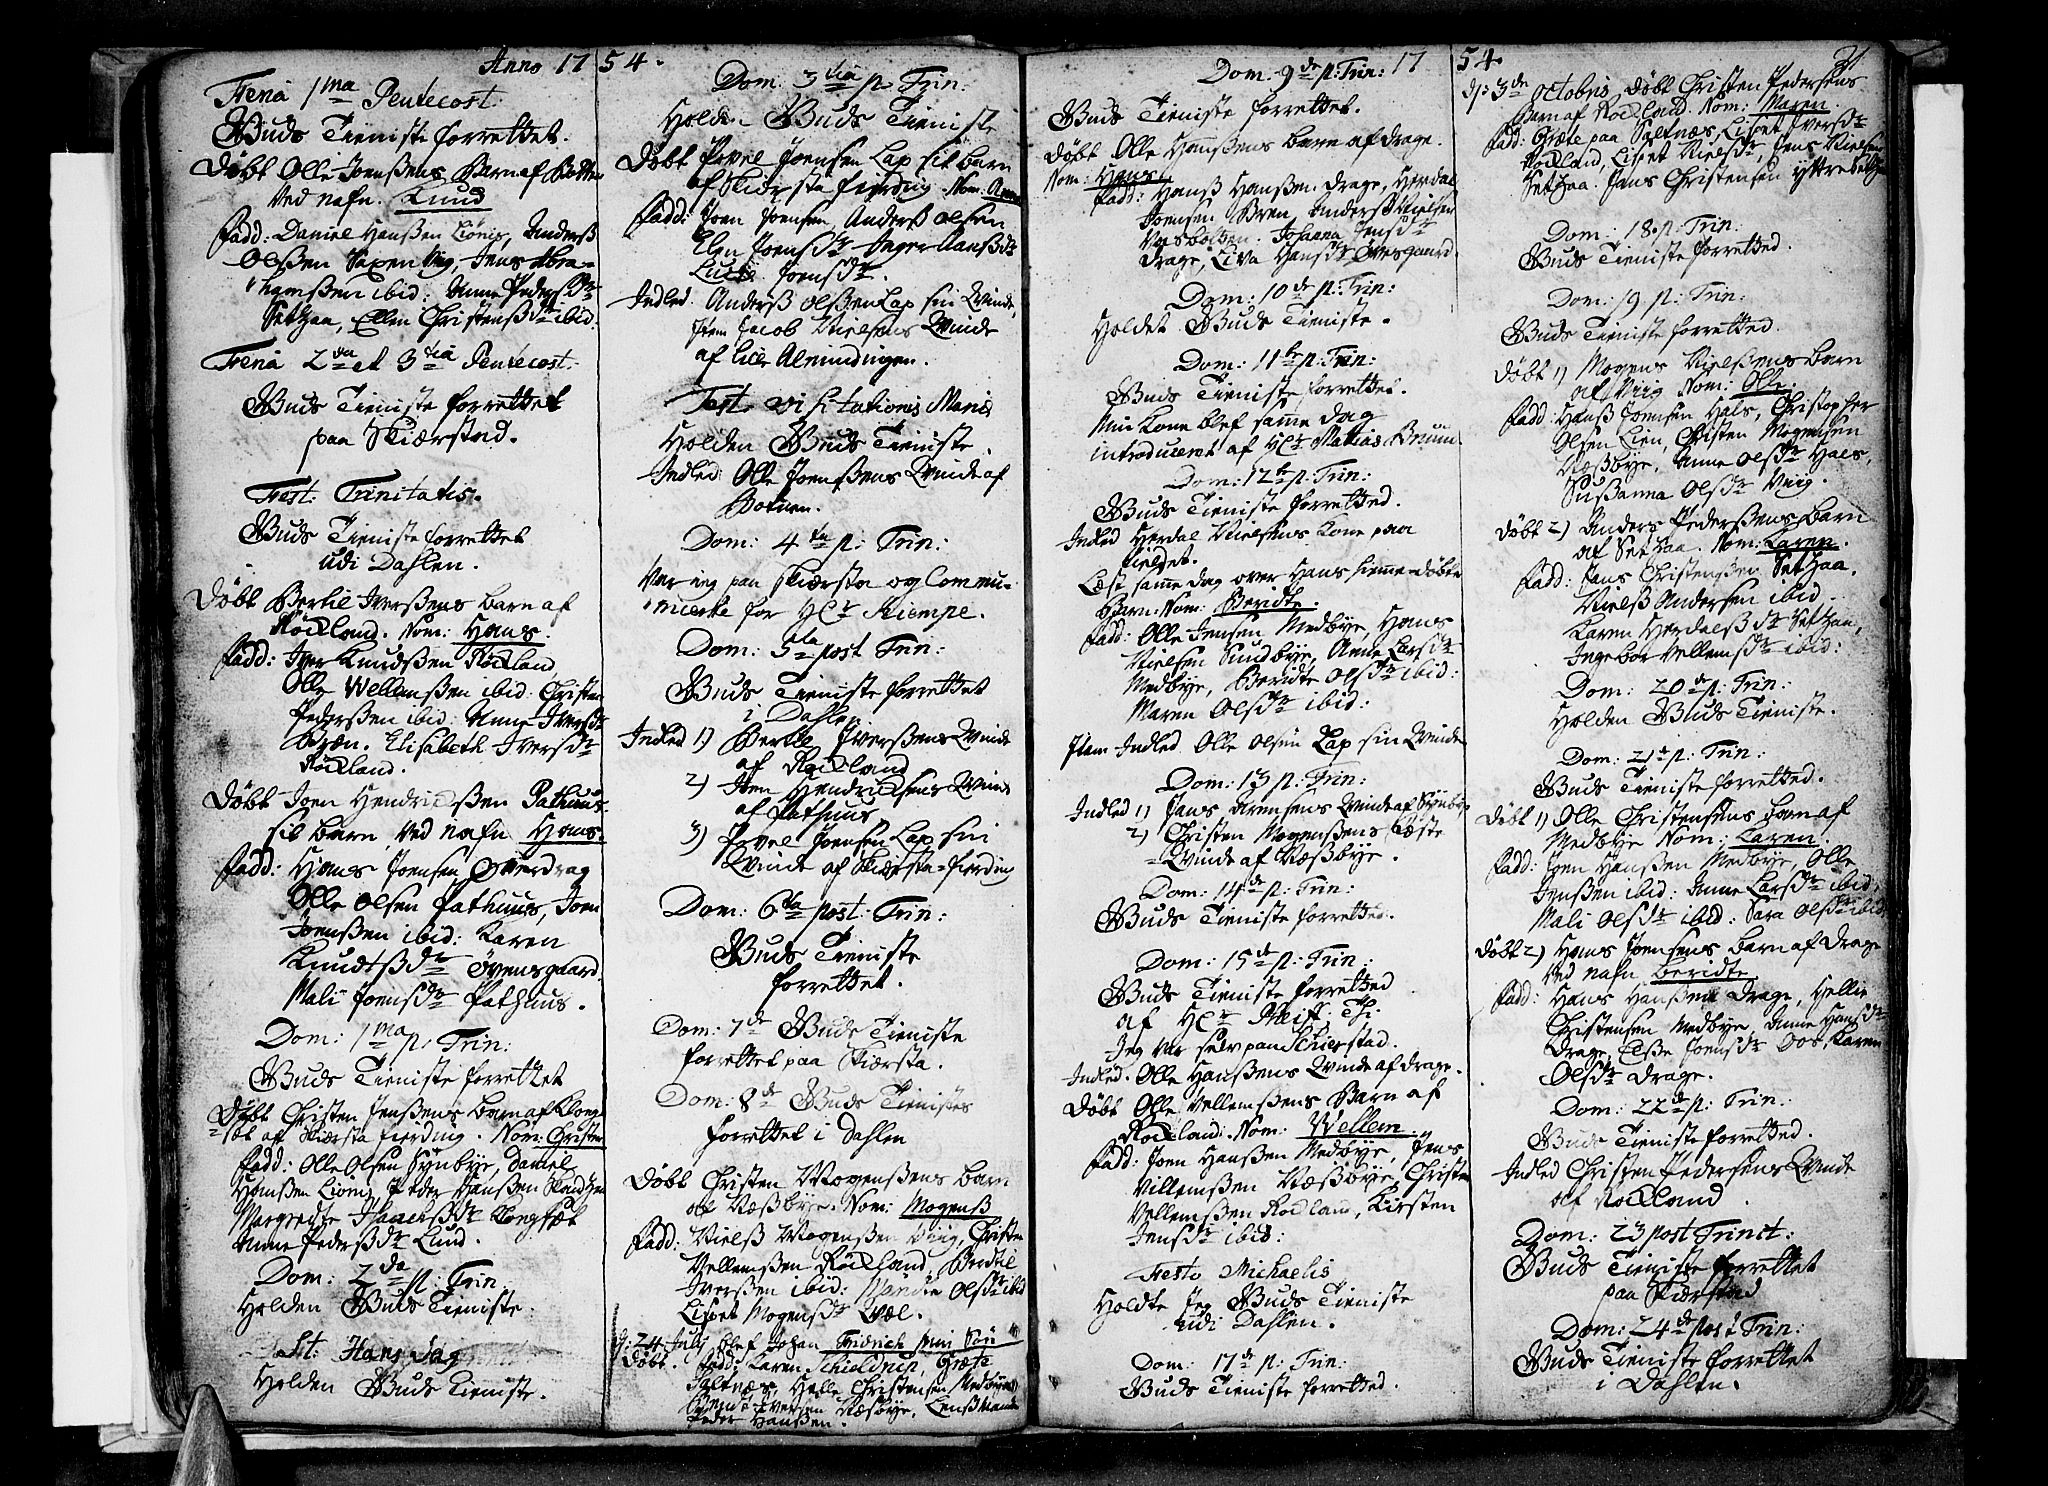 Anno 1754.
Feria 1ma Pentecost.
Guds Tieniste forrettet.
Døbt Olle Joensens Barn af Botten
ved nafn. Knud
Fadd: Daniel Hanßen Liønis, Anderß
Olßen Saxenvig, Jens Abra-
hamßen ibid: Anne Pedersdtr
Setzaa, Ellen Christensdtr ibid.
Feria 2da et 3tia Pentecost.
Guds Tieniste forrettet
paa Skiærstad.
Fest: Trinitatis.
Guds Tieniste forrettet
udi Dahlen.
Døbt Bertil Iverßens barn af
Røckland. Nom: Hans.
Fadd: Iver Knudßen Røckland
Olle Wellemßen ibid: Christen
Pederßen ibid: Anne Iversdtr
Bræn. Elisabeth Iversdtr
Røckland.
Døbt Joen Hendricksen Pathuus
sit barn ved nafn Hans.
Fadd: Hans Joensen Øverdrag
Olle Olsen Pathuus, Joen
Joensßen ibid: Karen
Knudtßdtr Øvensgaard
Mali Joensdtr Pathuus.
Dom: 1ma p: Trin:
Guds Tieniste forrettet
Døbt Christen Jenßens barn af Klong-
sæt af Skiærsta fierding. Nom: Christen
Fadd: Olle Olsen Synbye, Daniel
Hansen Liønis, Peder Hanßen
Margrethe Isachsdtr Klongsæt
Anne Pedersdtr Lund.
Dom: 2da p: Trin:
Holden Guds Tieniste.
St: Hans Dag
Holden Guds Tieniste.
Dom: 3tia p. Trin:
Holden Guds Tieniste
Døbt Povel Joensen Lap sit barn
af Skiersta fierding. Nom: Anne
Fadd: Joen Joensen Anderß Olsen
Elen Joensdtr Inger Hansdtr
Lucie Joensdtr.
Indled. Anderß Olßen Lap sin Qvinde,
Item Jacob Nielsens Qvinde
af Lille Almindingen.
Fest. Visitationis Mariæ
Holden Guds Tieniste.
Indled Olle Joensens Qvinde af
Botnen.
Dom: 4ta p: Trin:
Var ieg paa Skiærsta og Commu-
nicerte for Hr Kiempe.
Dom: 5ta post Trin:
Guds Tieniste forrettet
i Dahlen
Indled 1) Bertil Iverßens Qvinde
af Røckland
2) Joen Hendricksens Qvinde
af Pathuus
3) Povel Joensen Lap sin
Qvinde af Skiersta-fierding
Dom: 6ta post: Trin:
Guds Tieniste
forrettet.
Dom: 7de Guds Tieniste
forrettet paa Skiærsta.
Dom: 8de Guds Tienistes
forrettet i Dahlen
Døbt Christen Mogensens barn
af Næßbye. Nom: Mogenß
Fadd: Nielß Mogenßen Vriig, Christen
Vellemßen Røckland, Berdtil
Iverßen ibid: Olsdtr ibid
Lisbet Mogensdtr Qvæl.
D: 24 Julij blef Johan Fridrich min Søn
Døbt. Fadd: Karen Schieldrup, Græte
Saltnæs, Helle Christensen Medbye
Bendt Iversen Næsbye, Lensmand
Peder Hanßen.
Dom: 9de p: Trin: 1754.
Guds Tieniste forrettet.
Døbt Olle Hanßens barn af Drage.
Nom: Hans.
Fadd: Hanß Hanßen. Drage, Herdal
Joensen Bræn, Anderß Nielsen
Johanna Jensdtr
Drage, Liva Hansdtr Øvesgaard.
Dom: 10de p: Trin:
Holdet Guds Tieniste.
Dom: 11te p: Trin:
Guds Tieniste forrettet.
Min Kone blef samme dag
introduceret af Hr Matias Bruun
Dom: 12te p: Trin:
Guds Tieniste forretted.
Indled Herdal Nielsens Kone paa
Fieldet.
Læst samme dag over Hans hiemme-døbte
Barn. Nom: Beridte.
Fadd: Olle Jensen Medbye, Hans
Nielsen Sundbye, Anne Larsdtr
Medbye, Beridte Olsdtr ibid:
Maren Olsdtr ibid:
Item Indled Olle Olsen Lap sin Qvinde
Dom: 13 p: Trin:
Indled 1) Jens Arensens Qvinde af Synbye
2) Christen Mogenßens
Qvinde af Næßbye.
Dom: 14de p: Trin:
Guds Tieniste forretted.
Dom: 15de p: Trin:
Guds Tieniste forretted
af Hr Pleiff: Th:
Jeg var selv paa Schierstad.
Indled. Olle Hanßens Qvinde af Drage.
Døbt Olle Vellemßens Barn af
Røckland. Nom: Wellem.
Fadd: Joen Hanßen Medbye, Jens
Villemßen Næßbye, Christen
Vellemßen Røckland, Kirsten
Jensdtr ibid:
Festo Michaelis
Holdte Jeg Guds Tieniste
udi Dahlen.
Dom: 17de p: Trin:
Guds Tieniste forretted.
21
D: 3de Octobris Døbt Christen Pedersens
Barn af Røckland. Nom: Maren.
Fadd: Græte paa Saltnæs, Lisbet Iversdtr
Røckland, Lisbet Nielsdtr, Jens Nielsen
Setzaa. Jens Christensen Yttre Setzaa
Dom: 18. p: Trin:
Guds Tieniste forretted.
Dom: 19 p: Trin:
Guds Tieniste forretted.
Døbt 1) Mogens Nielßens barn
af Vriig Nom: Olle.
Fadd: Hanß Joensen Hals, Christopher
Olsen Lien, Christen Mogensen
Næßbye, Anne Olsdtr Hals,
Sußanna Olsdtr Vriig.
Døbt 2) Anders Pederßens barn
af Setzaa. Nom: Karen.
Fadd: Jens Christenßen Setzaa,
Nielß Andersen ibid.
Karen Herdalsdtr Setzaa,
Ingebor Vellemsdtr ibid:
Dom: 20de p: Trin:
Holden Guds Tieniste.
Dom: 21de p: Trin:
Guds Tieniste forretted.
Døbt 1) Olle Christensens barn af
Medbye Nom: Karen.
Fadd: Joen Hanßen Medbye, Olle
Jensßen ibid: Anne Larsdtr ibid,
Mali Olsdtr ibid: Sara Olsdtr ibid
Døbt 2) Hans Joensens barn af Drage
ved nafn Beridte.
Fadd: Hans Hanßen Drage, Hellie
Christensen Medbye, Anne Hansdtr
Drage, Elße Joensdtr Oos, Karen
Olsdtr Drage.
Dom: 22de p: Trin:
Guds Tieniste forretted.
Indled Christen Pedersens Qvinde
af Røckland.
Dom: 23 post Trinit:
Guds Tieniste forrettet
paa Skiærstad
Dom: 24de post Trin:
Guds Tieniste forrettet
i Dahlen.